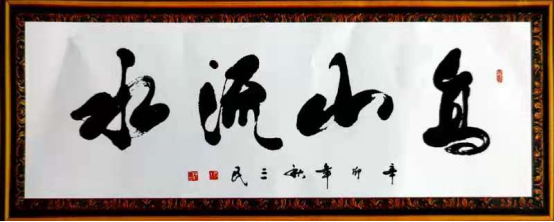 高山流水
辛卯年秋三民